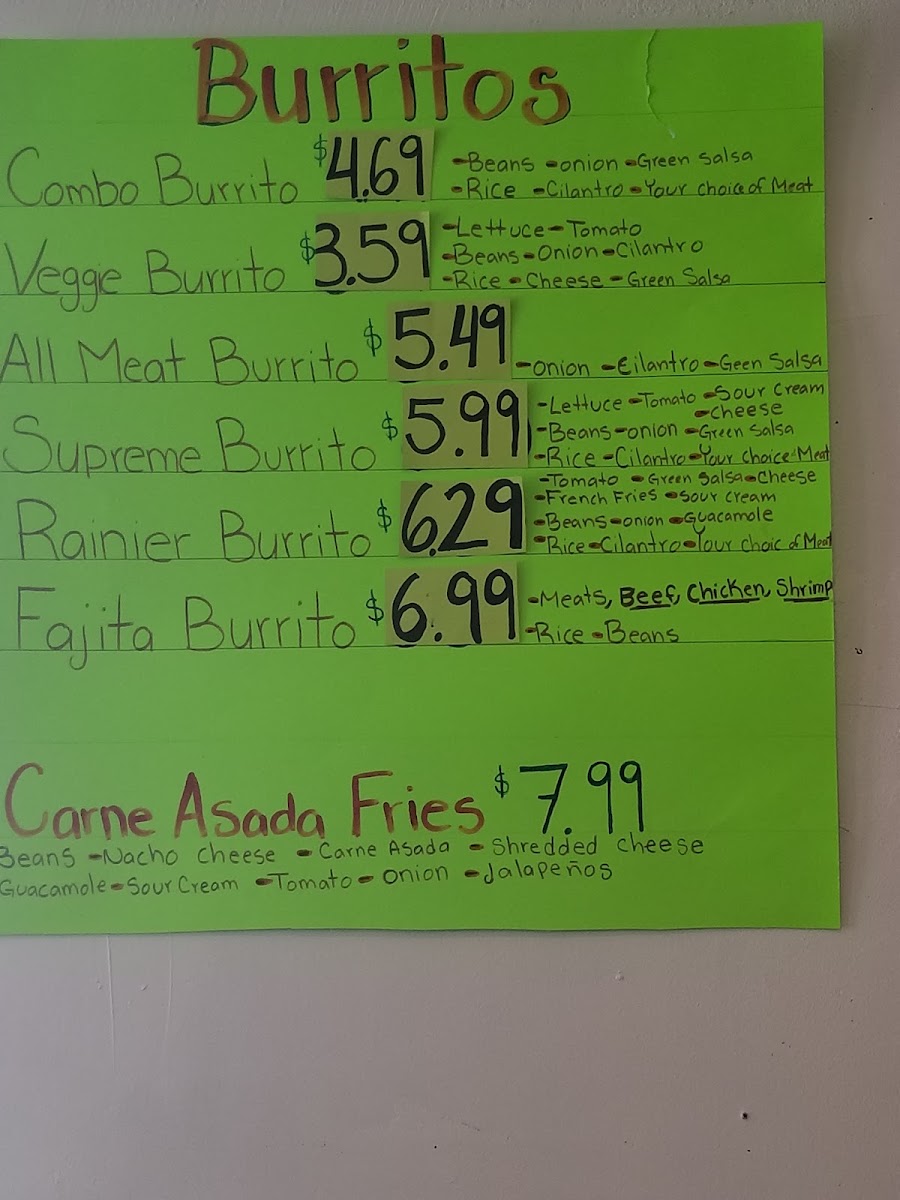 Burritos
Combo Burrito $4.69 -Beans -onion -Green Salsa
-Rice -Cilantro -Your choice of Meat
Veggie Burrito $3.59 -Lettuce -Tomato
-Beans -Onion -Cilantro
-Rice -Cheese -Green Salsa
All Meat Burrito $5.49 -onion -Cilantro -Geen Salsa
Supreme Burrito $5.99 -Lettuce -Tomato -Sour Cream
-Cheese
-Beans -onion -Green Salsa
-Rice -Cilantro -Your choice Meat
Rainier Burrito $6.29 -Tomato -Green Salsa -Cheese
-French Fries -Sour cream
-Beans -onion -Guacamole
-Rice -Cilantro -Your choic of Meat
Fajita Burrito $6.99 -Meats, Beef, Chicken, Shrimp
-Rice -Beans
Carne Asada Fries $7.99
Beans -Nacho cheese -Carne Asada -Shredded cheese
Guacamole -Sour Cream -Tomato -onion -Jalapeños